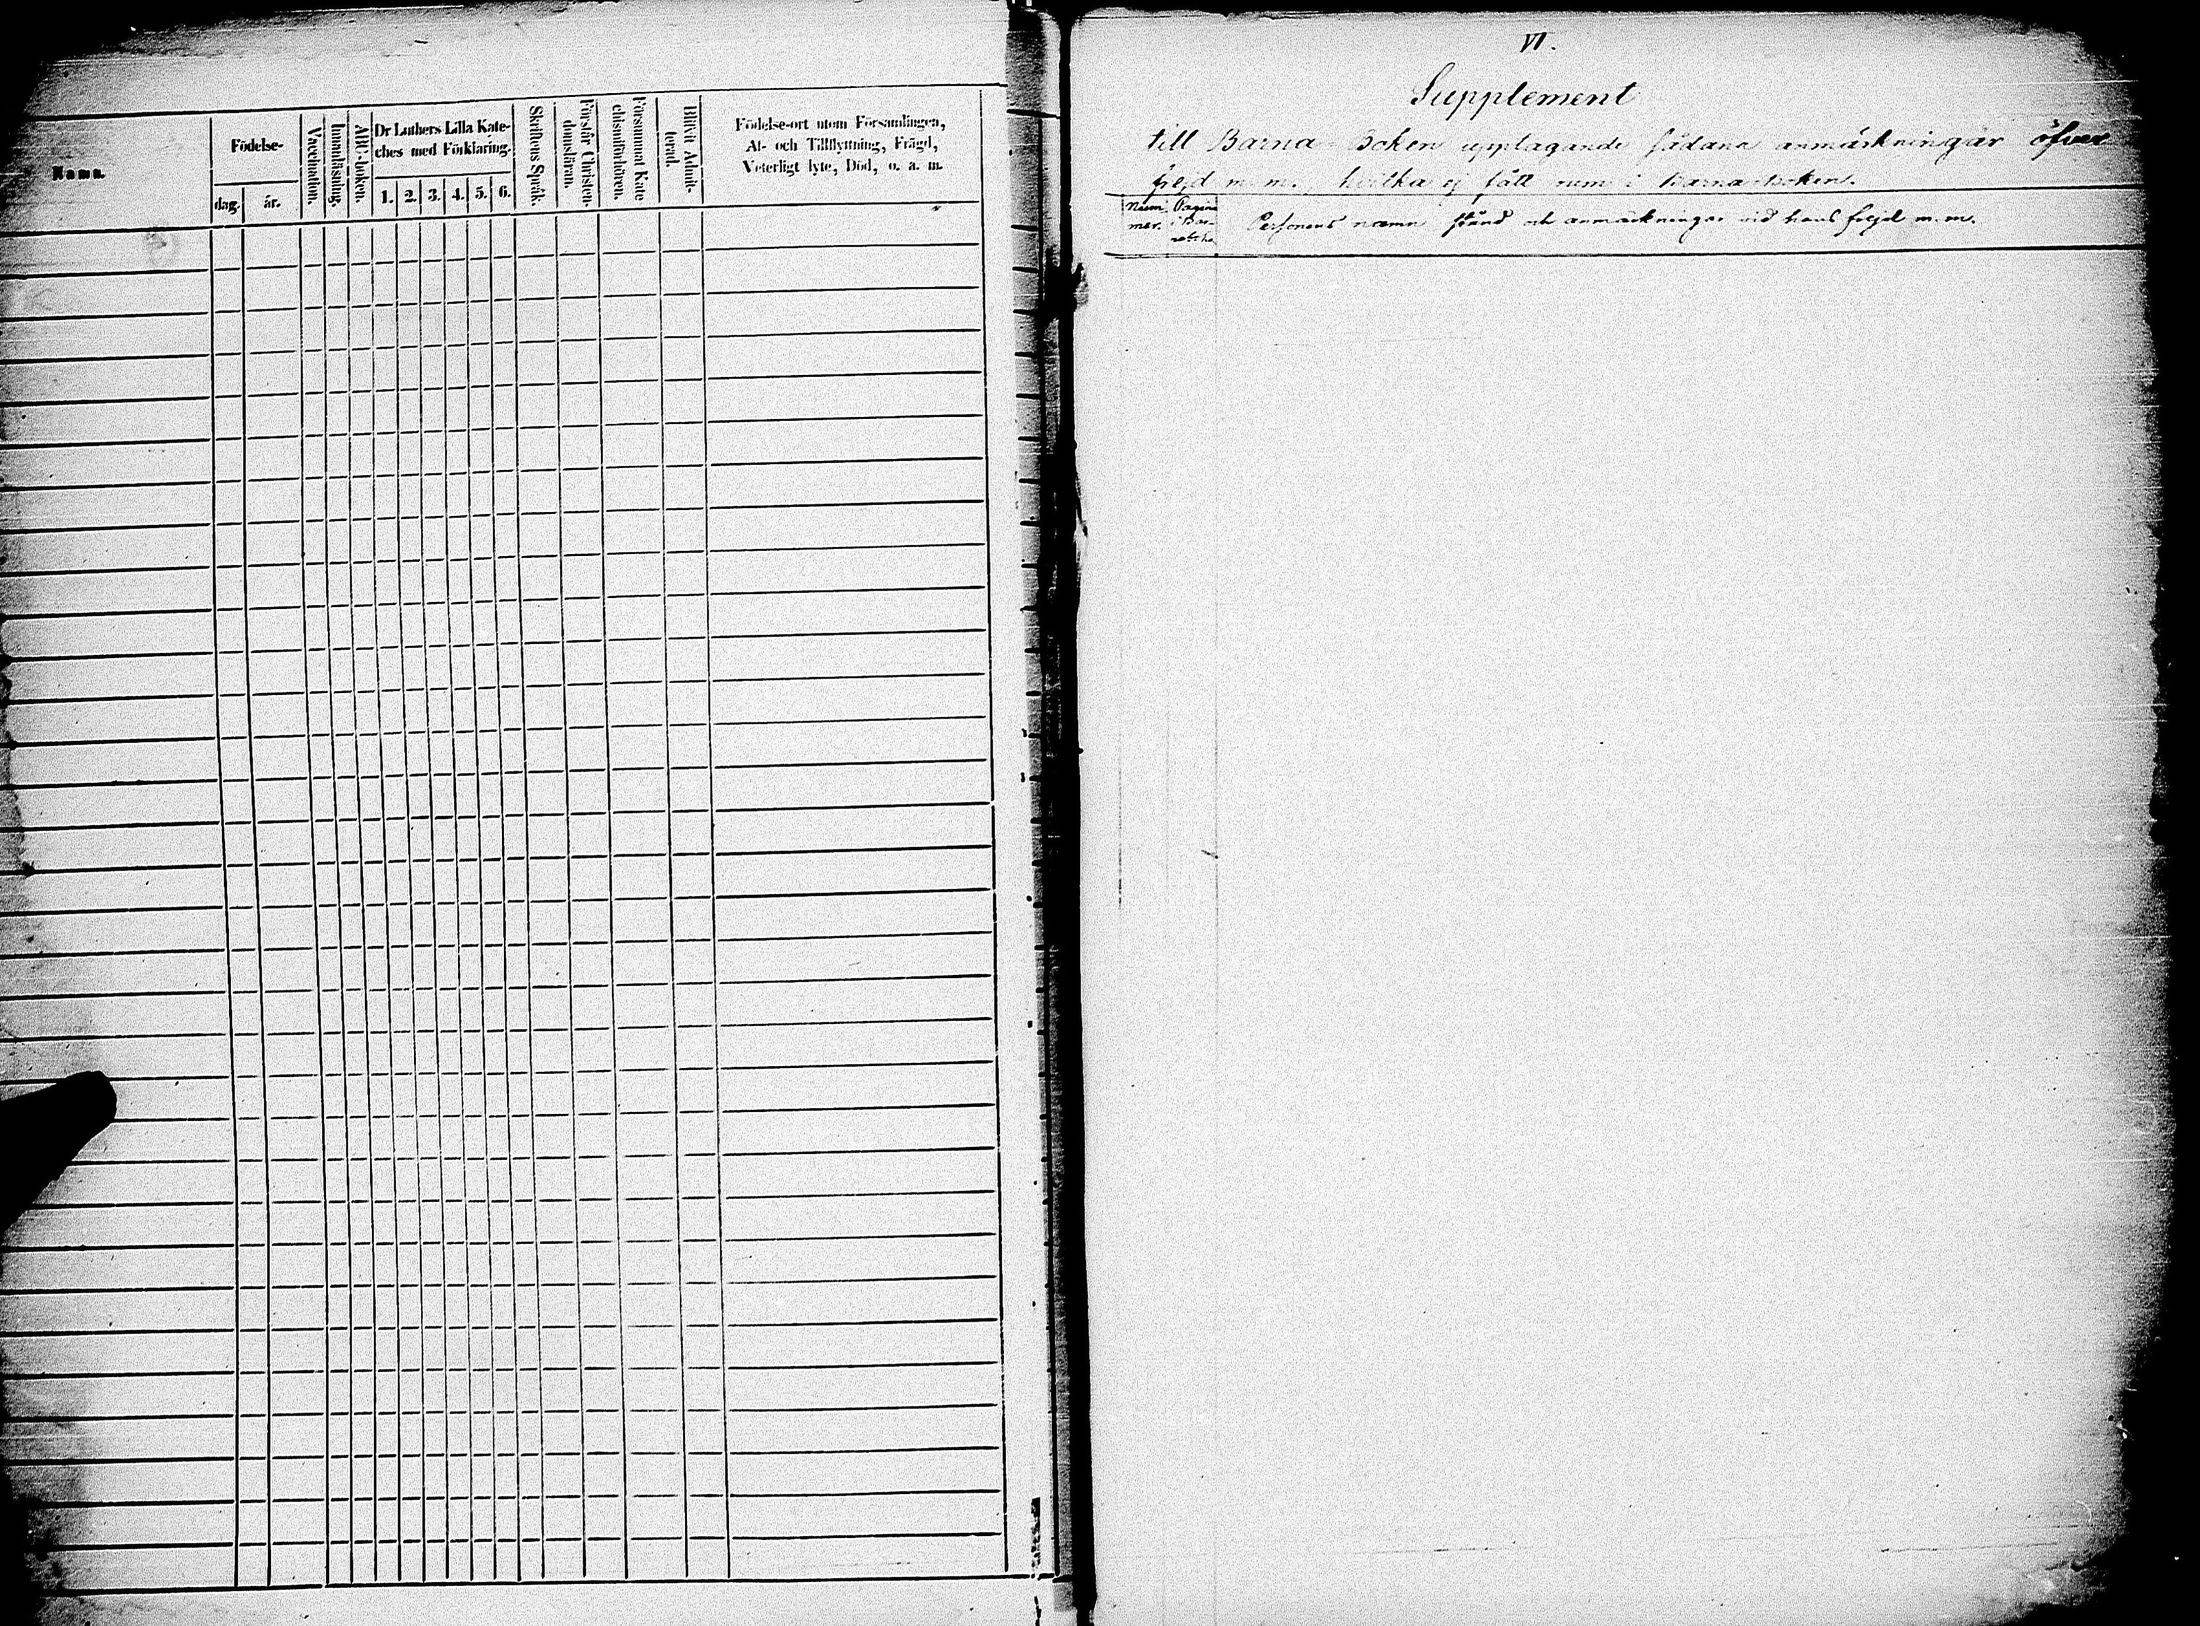 Namn.
Födelse-
dag.
år.
Vaccination.
Innanläsning.
ABC-boken.
Dr Luthers Lilla Kate-
ches med Förklaring.
1. 2. 3. 4. 5. 6.
Skriftens Språk.
Förstår Christen-
domsläran.
Försummat Kate
chismiförhören.
Blifvit Admit-
terad.
Födelse-ort utom Församlingen,
Af- och Tillflyttning, Frägd,
Veterligt lyte, Död, o. a. m.
VI.
Supplement
till Barna-Boken upptagande sådana anmärkningar öfver
frejd m. m. hvilka ej fått rum i Barna-boken.
Num
mer.
Pagina
i Bar-
Personens namn stånd och anmärkningar vid hans frejd m. m.